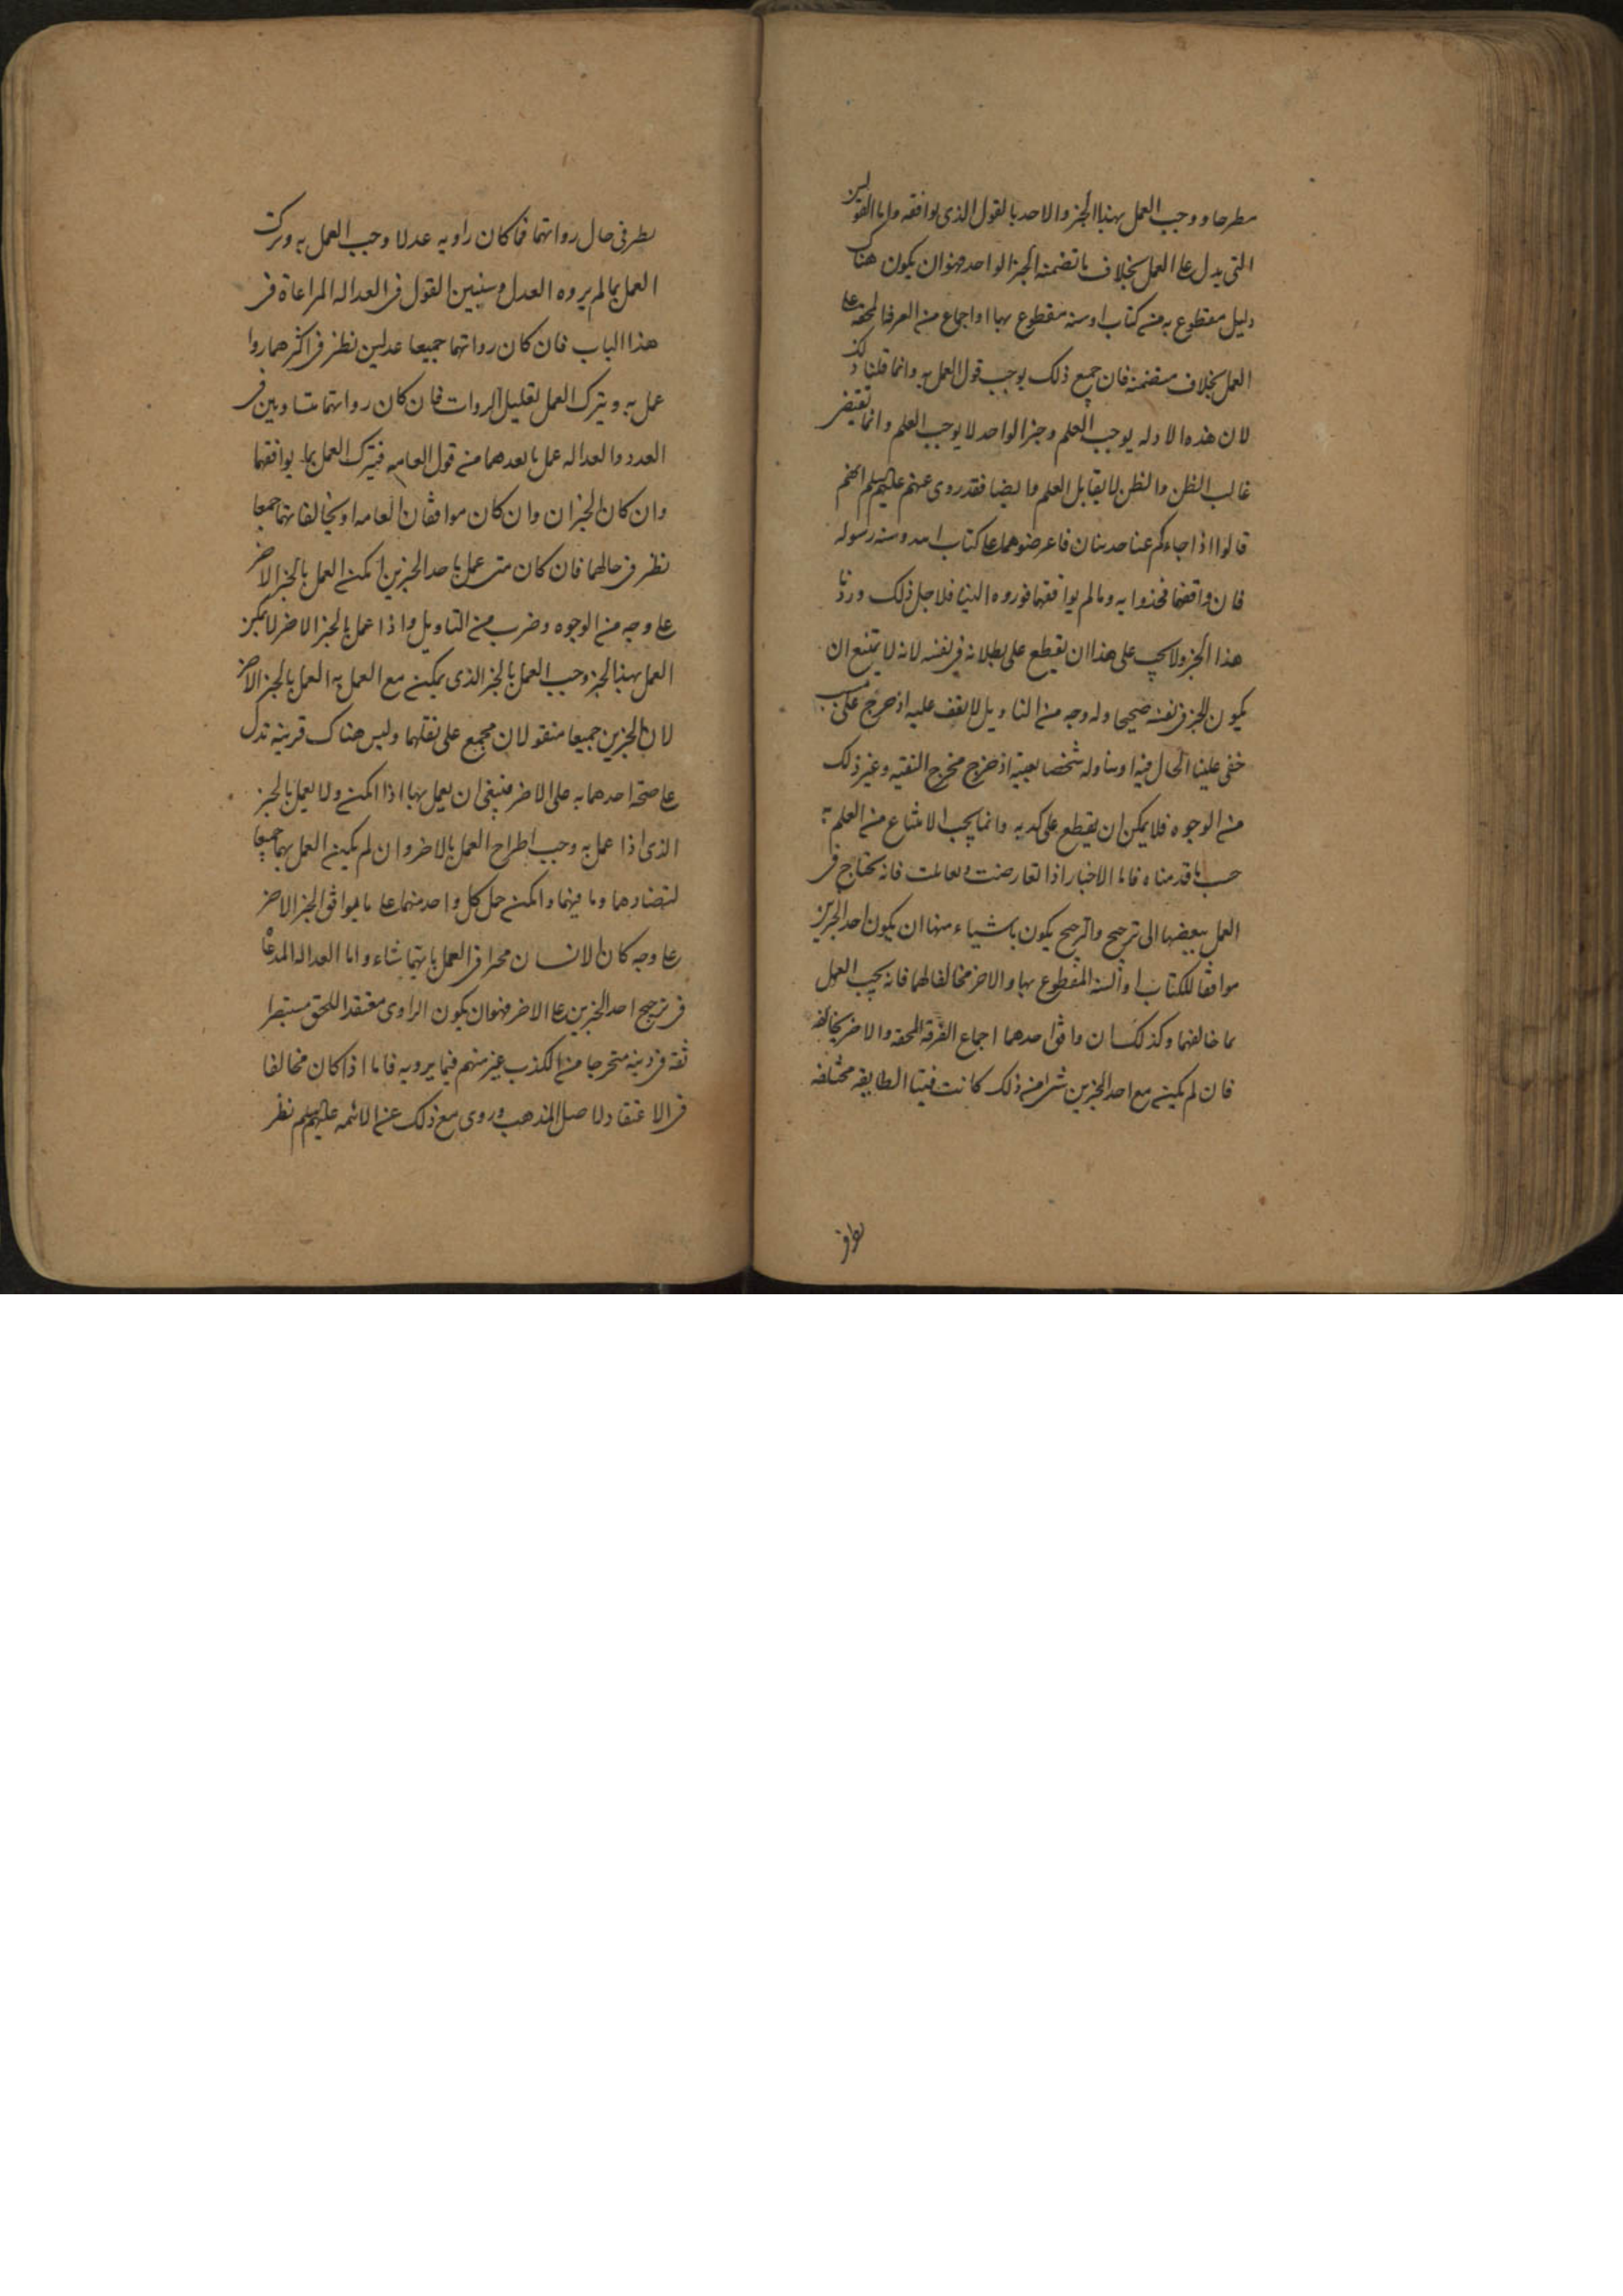 مطرحا ووجب العمل بهذا الخبر والاحد بالقول الذى يوافقه واما القراين
التى يدل على العمل بخلاف ما تضمنه الخبر الواحد فهوان يكون هناك
دليل مقطوع به من كتاب او سنه مقطوع بها او اجماع من الفرقه المحقه على
العمل بخلاف متضمنه فان جميع ذلك يوجب ترك العمل به وانما قلنا ذلك
لان هذه الادله يوجب العلم وخبر الواحد لا يوجب العلم وانما يقتضى
غالب الظن والظن لا يقابل العلم وايضا فقد روى عنهم عليهم السلم انهم
قالوا اذا جاءكم عنا حديثان فاعرضوهما على كتاب الله وسنه رسوله
فان وافقهما فخذوا به ومالم يوافقهما فوروه الينا فلاجل ذلك رددنا
هذا الخبر ولا يجب على هذا ان نقطع على بطلانه فى نفسه لانه لا يمتنع ان
يكون الخبر فى نفسه صحيحا وله وجه من التاويل لا نقف عليه او خرج على سبب
خفى علينا الحال فيه او تناوله شخصا بعينه او خرج مخرج التقيه وغير ذلك
من الوجوه فلا يمكن ان نقطع على كذبه وانما يجب الامتناع من العلم به
حسب ما قدمناه فاما الاخبار اذا تعارضت وتقابلت فانه يحتاج فى
العمل ببعضها الى ترجيح والترجيح يكون باشياء منها ان يكون احد الخبرين
موافقا للكتاب او السنه المقطوع بها والاخر مخالفا لهما فانه يجب العمل
بما خالفهما وكذلك ان وافق احدهما اجماع الفرقه المحقه والاخر يخالفه
فان لم يكن مع احد الخبرين شى من ذلك كانت فتيا الطايفه مختلفه
نظر فى
نظر فى حال رواتهما فما كان راويه عدلا وجب العمل به وترك
العمل بما لم يروه العدل وسنبين القول فى العداله المراعاة فى
هذا الباب فان كان رواتهما جميعا عدلين نظر فى اكثرهما روا
عمل به ويترك العمل بقليل الروات فان كان رواتهما متساويين فى
العدد والعداله عمل بابعدهما من قول العامه فيترك العمل بما يوافقهما
وان كان الخبران وان كان موافقان العامه او يخالفانهما جميعا
نظر فى حالهما فان كان متى عمل باحد الخبرين امكن العمل بالخبر الاخر
على وجه من الوجوه وضرب من التاويل واذا عمل بالخبر الاخر لا يمكن
العمل بهذا الخبر وجب العمل بالخبر الذى يمكن مع العمل به العمل بالخبر الاخر
لان الخبرين جميعا منقولان مجمع على نقلهما وليس هناك قرينه تدل
على صحة احدهما به على الاخر فينبغى ان يعمل بها اذا امكن ولا يعمل بالخبر
الذى اذا عمل به وجب اطراح العمل بالاخر وان لم يكن العمل بهما جميعا
لتضادهما وما فيهما وامكن حمل كل واحد منهما على ما يوافق الخبر الاخر
على وجه كان الانسان مخيرا فى العمل بايهما شاء واما العداله المدعا
فى ترجيح احد الخبرين على الاخر فهوان يكون الراوى معتقدا للحق مستبصرا
ثقه فى دينه متحرجا من الكذب غير متهم فيما يرويه فاما اذا كان مخالفا
فى الاعتقاد لاصل المذهب وروى مع ذلك عن الائمه عليهم السلم نظر